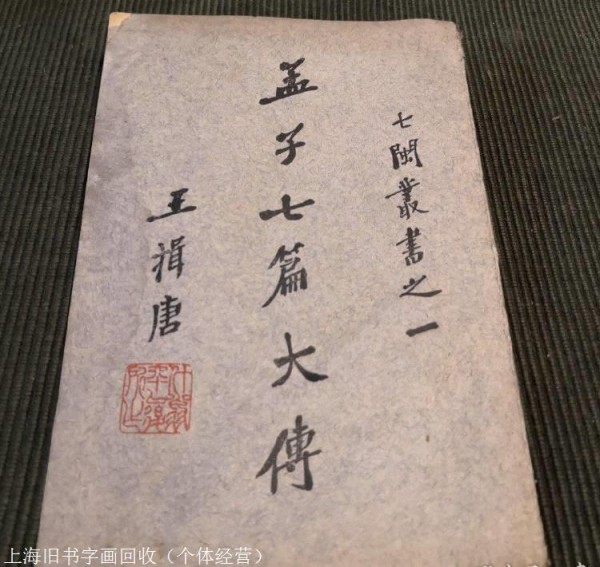 七閩叢書之一
孟子七篇大傳
王揖唐
上海旧书字画回收（个体经营）